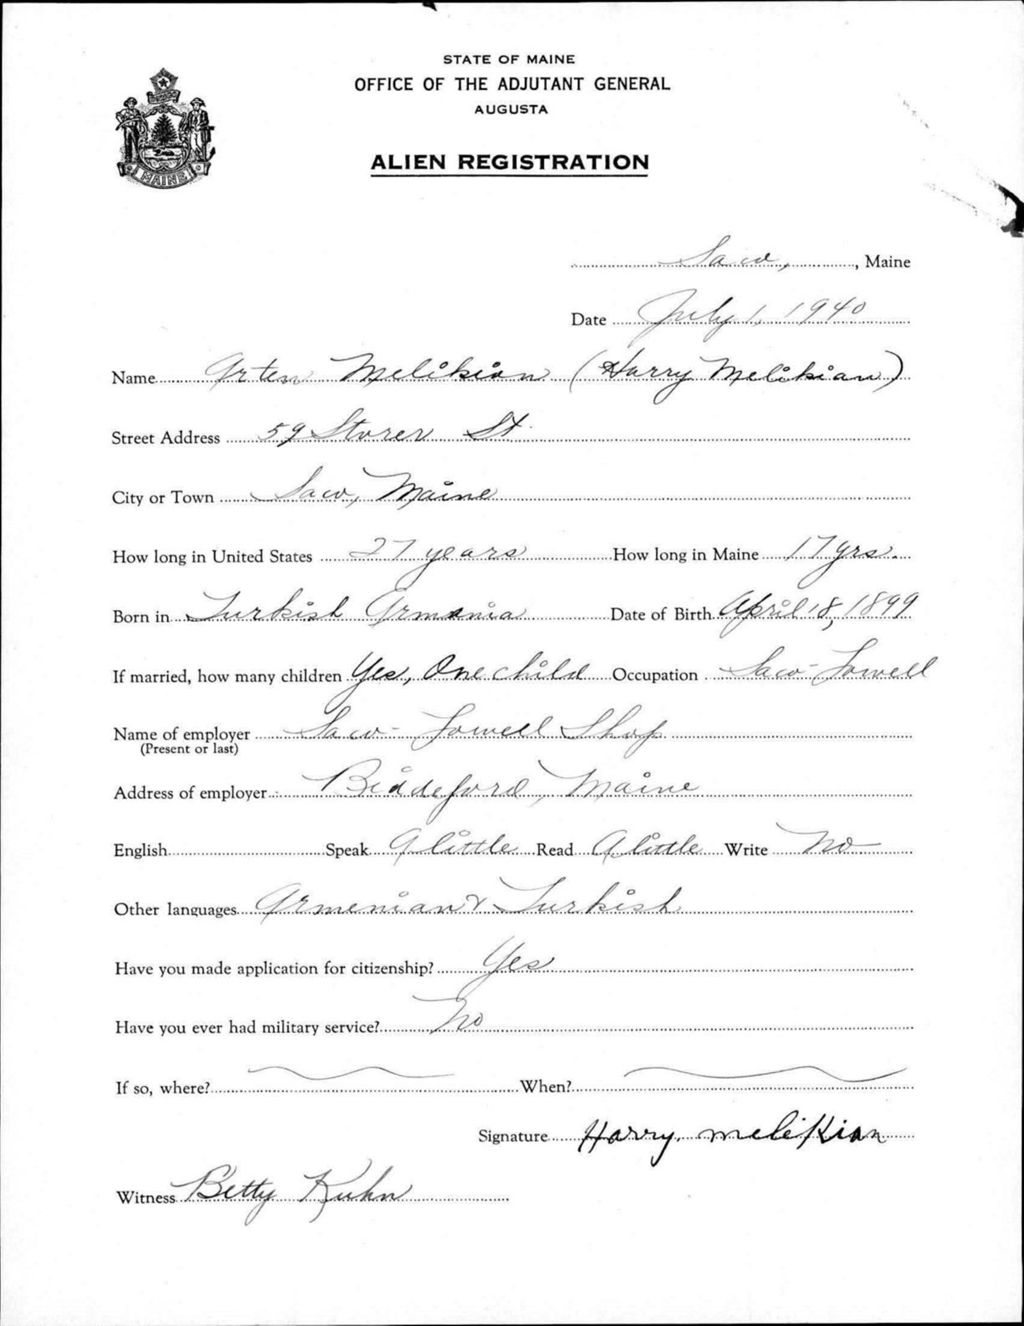 STATE OF MAINE
OFFICE OF THE ADJUTANT GENERAL
AUGUSTA
ALIEN REGISTRATION
MAINE
Saco, , Maine
Date July 1, 1940
Name Arten Melikian (Harry Melikian)
Street Address 59 Storer St.
City or Town Saco, Maine
How long in United States 27 years How long in Maine 17 yrs.
Born in Turkish Armania Date of Birth April 18, 1899
If married, how many children Yes, One child Occupation Saco-Lowell
Name of employer Saco-Lowell Shop
(Present or last)
Address of employer Biddeford, Maine
English Speak A little Read A little Write No
Other languages Armenian & Turkish
Have you made application for citizenship? Yes
Have you ever had military service? No
If so, where? When?
Signature Harry. melikian
Witness Betty Kuhn